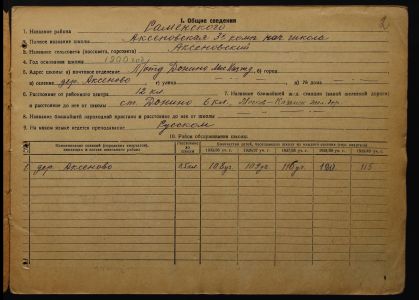 2
I. Общие сведения
1. Название района Раменского
2. Полное название школы Аксеновская 3х комп нач школа
3. Название сельсовета (поссовета, горсовета) Аксеновский
4. Год основания школы 1900 год
5. Адрес школы: а) почтовое отделение Донино б) город
в) селение дер. Аксеново г) улица д) № дома
6. Расстояние от районного центра 12 кл. 7. Название ближайшей ж.-д. станции (какой железной дороги)
и расстояние до нее от школы ст. Донино 6 кл.
8. Название ближайшей пароходной пристани и расстояние до нее от школы
9. На каком языке ведется преподавание Русском
10. Район обслуживания школы
Расстояние до школы
1935/36 уч. г. 1936/37 уч. г. 1937/38 уч. г. 1938/39 уч. г. 1939/40 уч. г.
1 дер. Аксеново 108 уч. 109 уч. 116 уч. 120 115